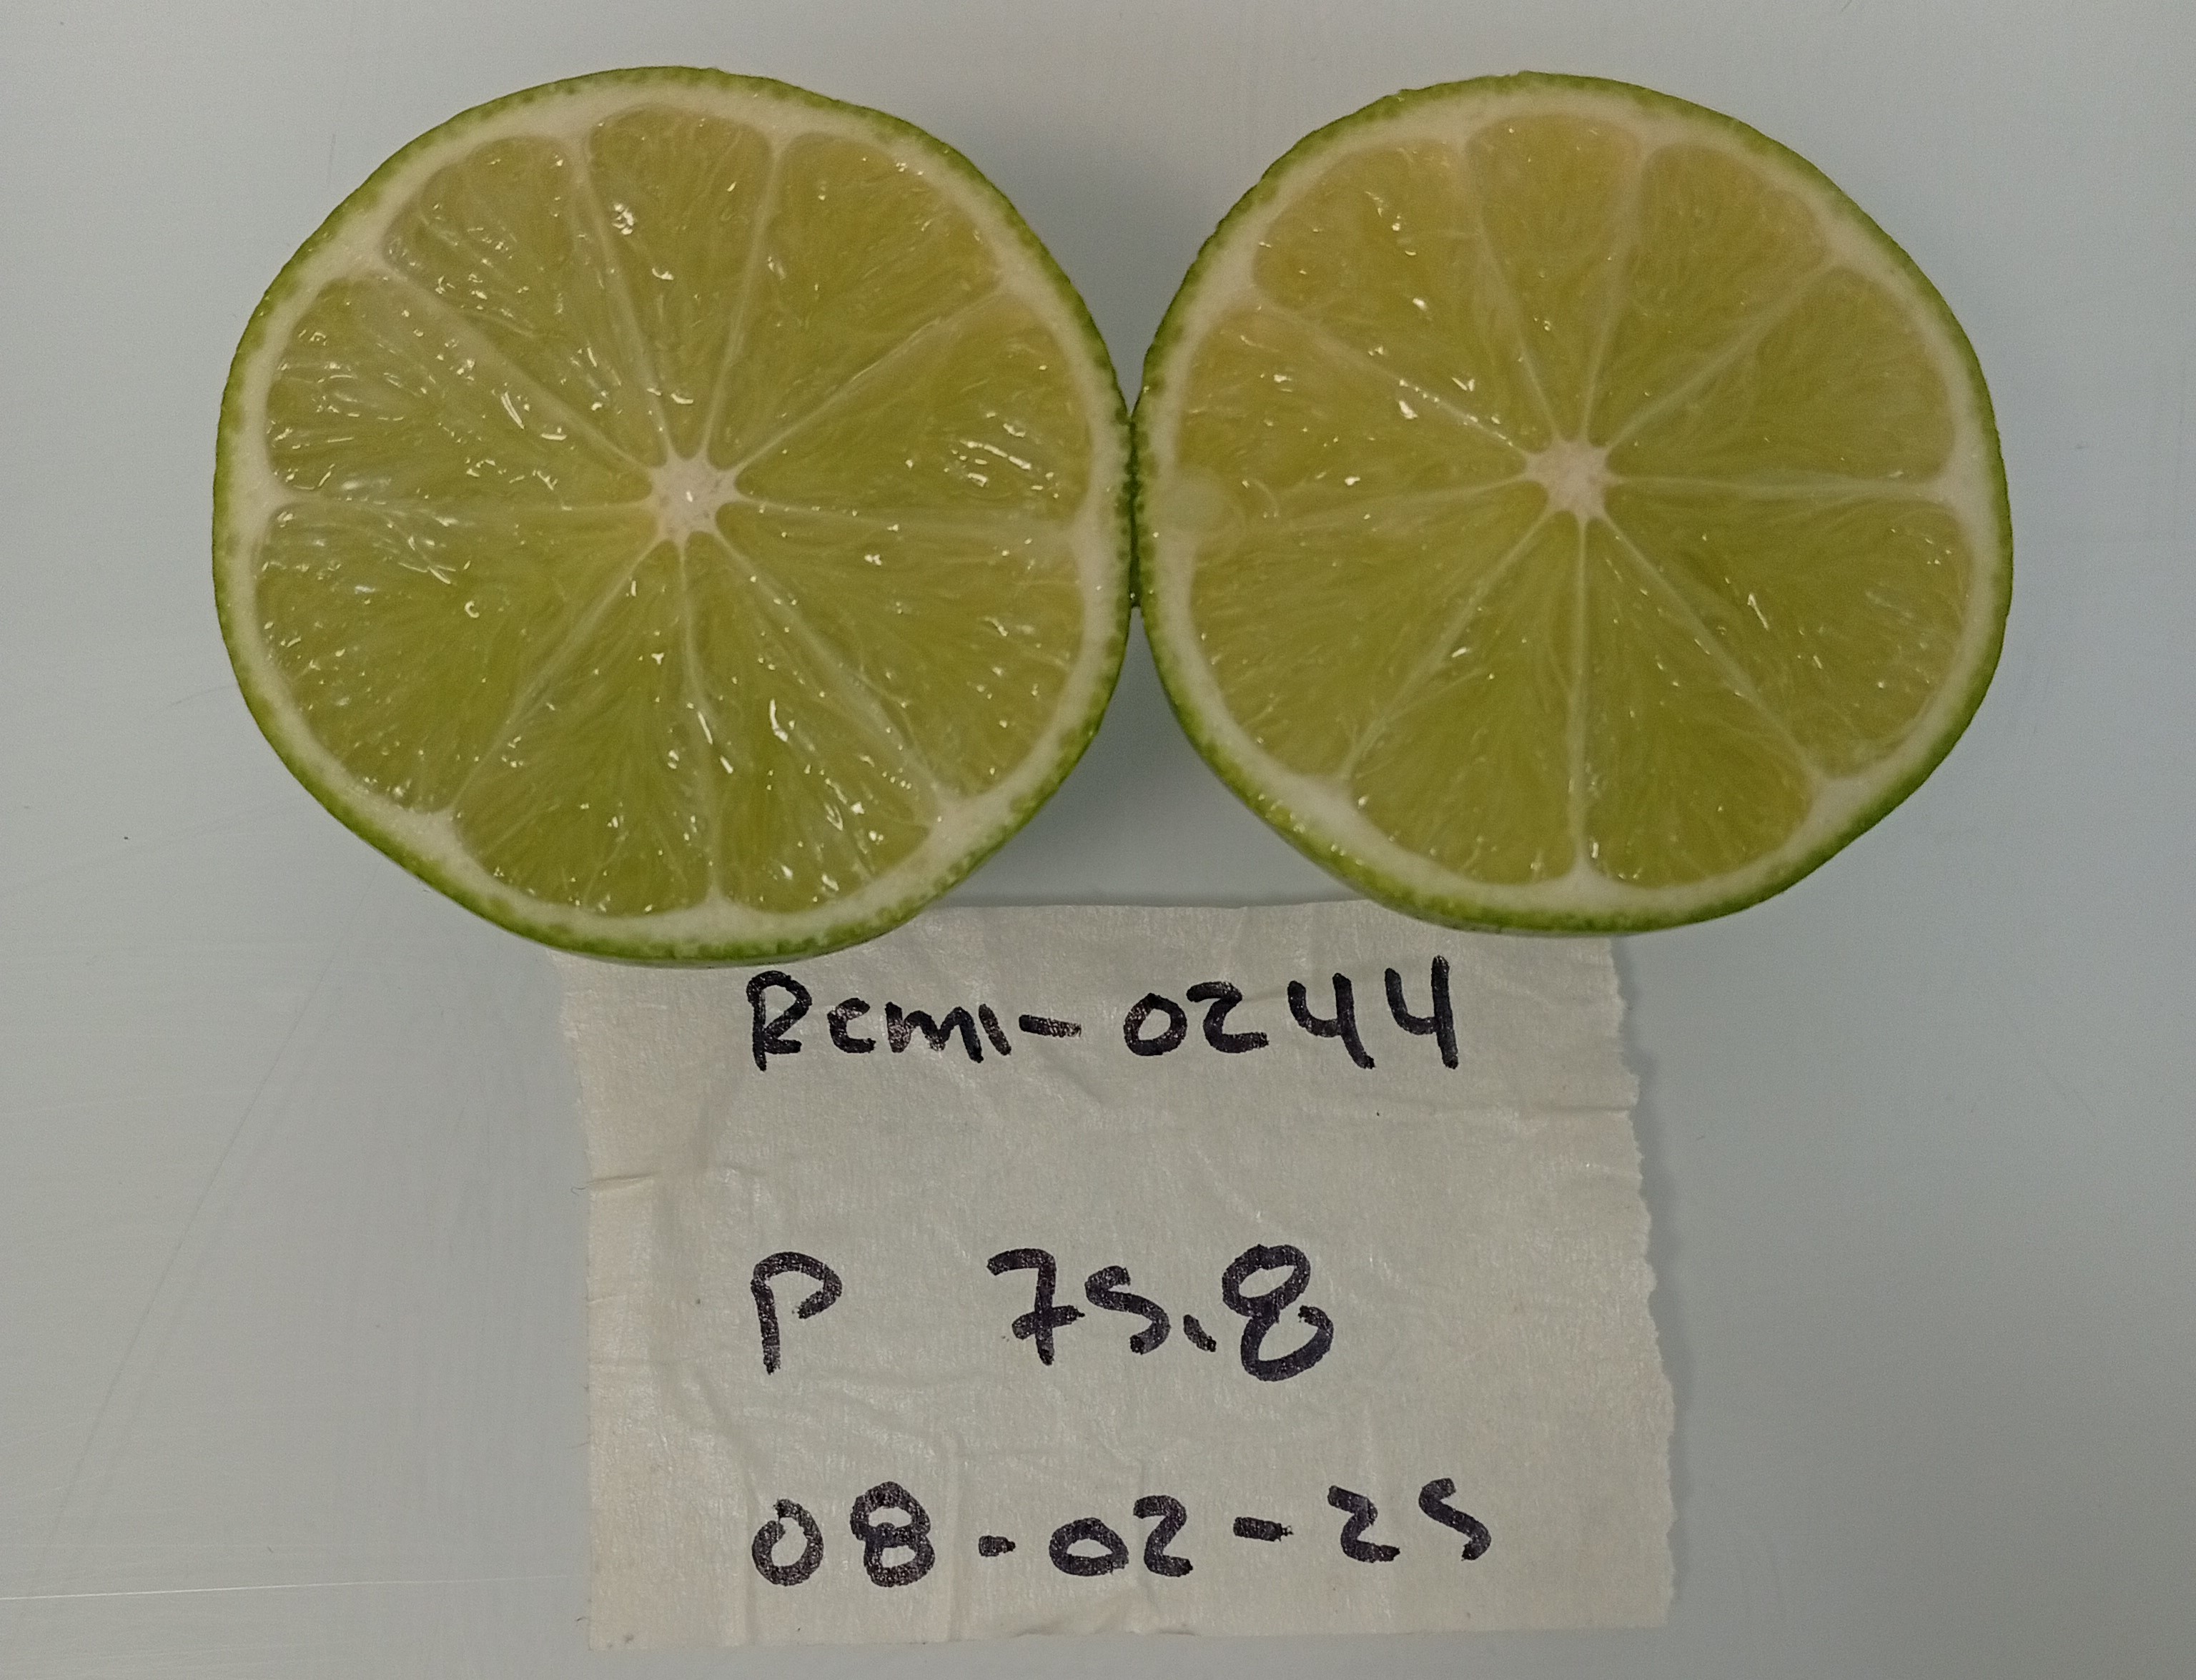 Rcmi-0244
P 75.8
08-02-25